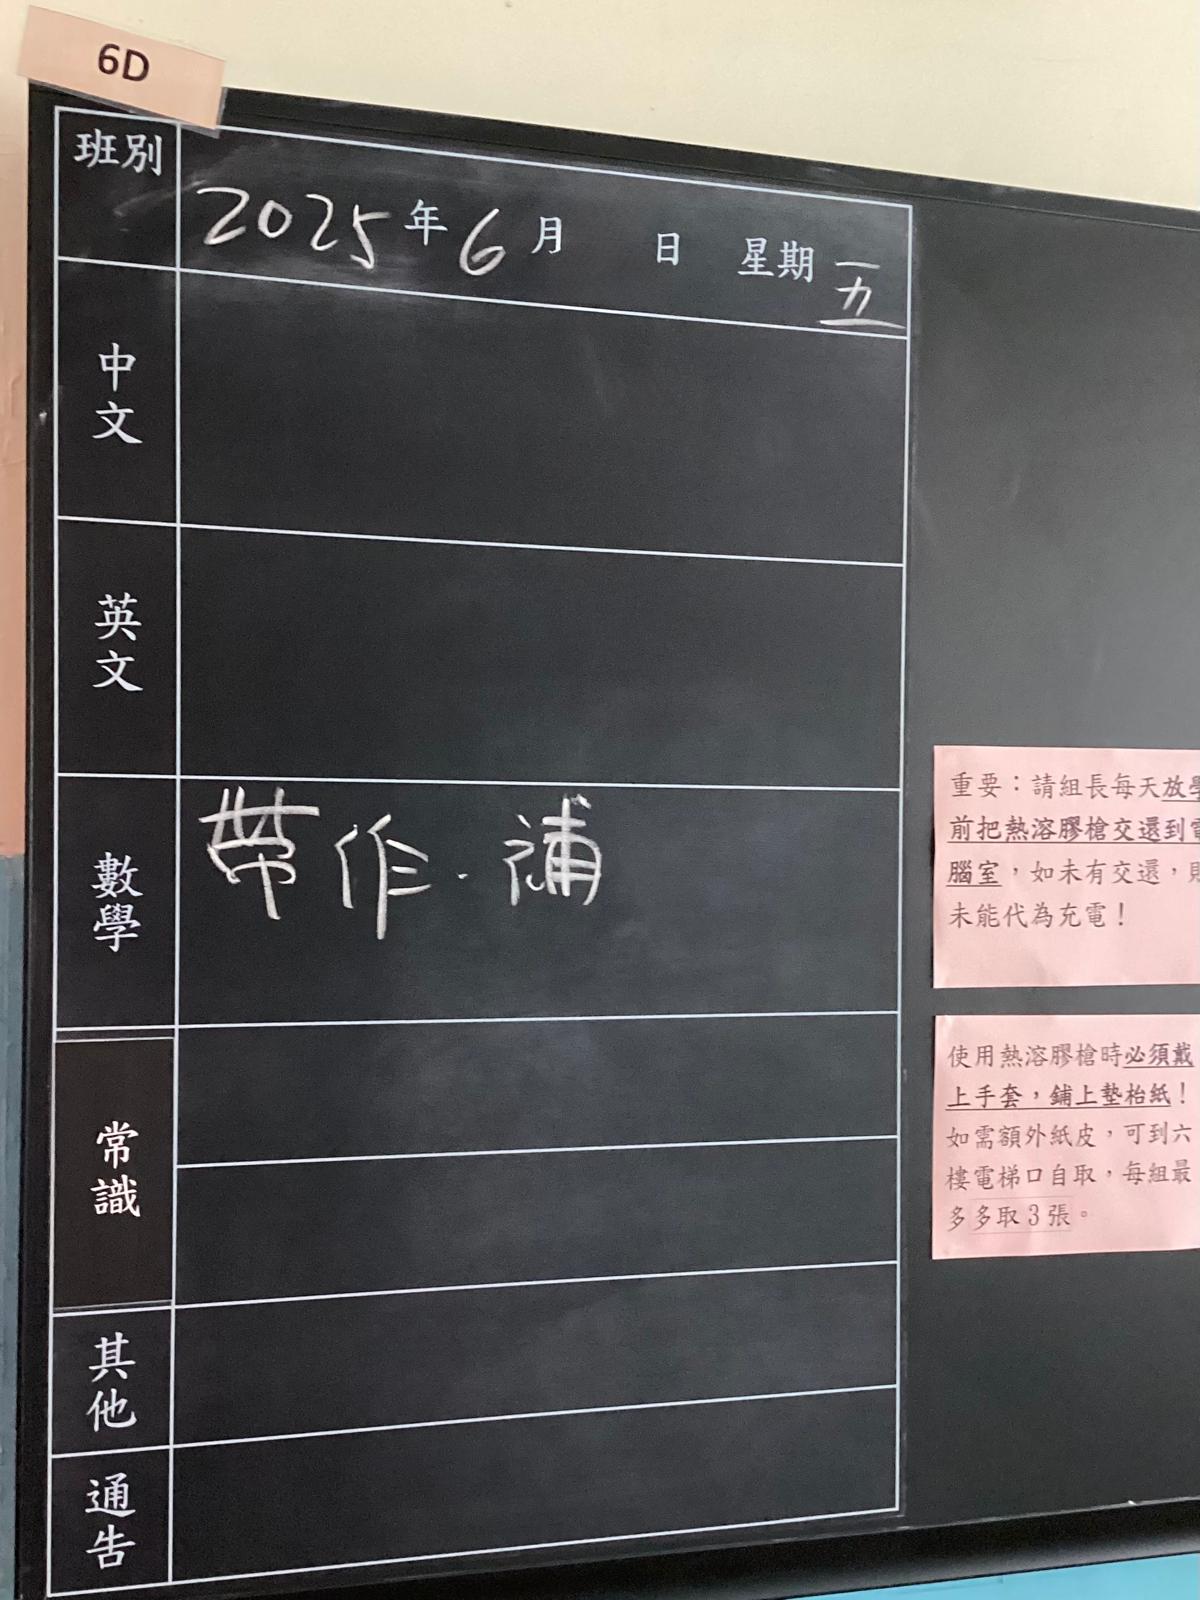 6D
班別
2025年6月 日 星期五
中文
英文
數學
帶作.補
常識
其他
通告
重要：請組長每天放學
前把熱溶膠槍交還到電
腦室，如未有交還，則
未能代為充電！
使用熱溶膠槍時必須戴
上手套，鋪上墊枱紙！
如需額外紙皮，可到六
樓電梯口自取，每組最
多多取3張。